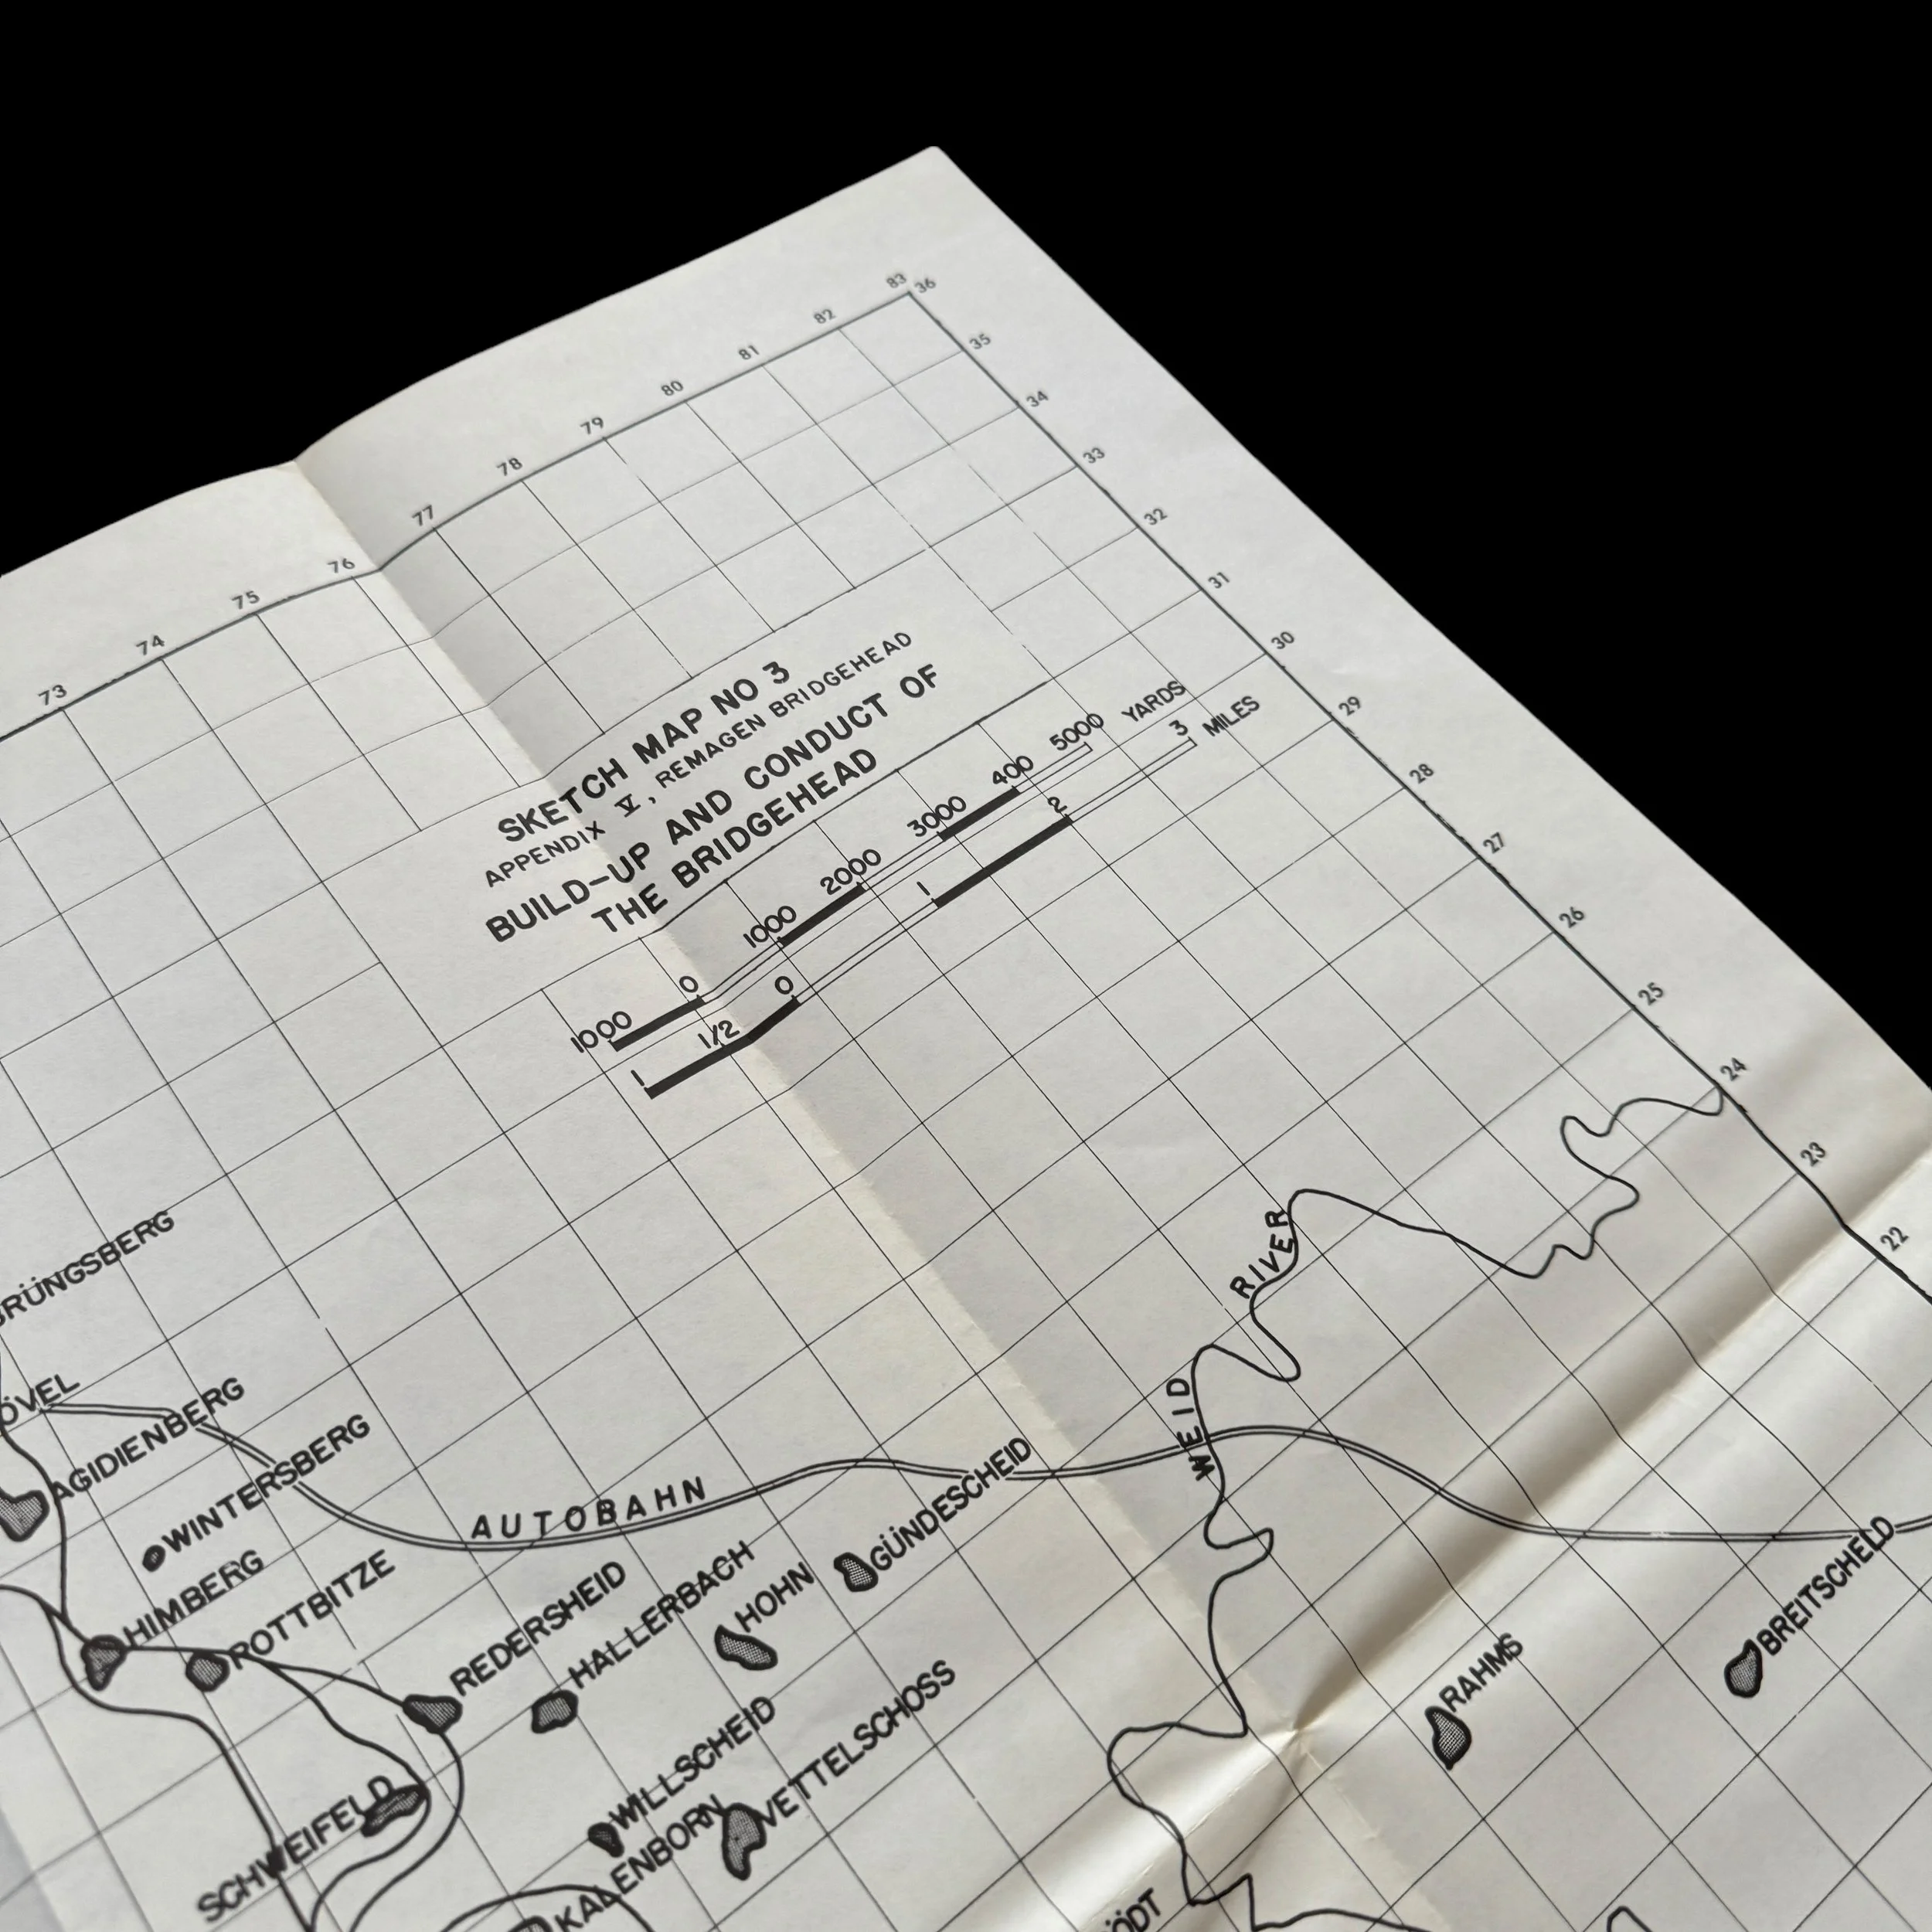 83
36
82
35
81
80
34
79
33
78
32
77
76
31
75
30
74
73
29
SKETCH MAP NO 3
APPENDIX V, REMAGEN BRIDGEHEAD
BUILD-UP AND CONDUCT OF
THE BRIDGEHEAD
1000 0 1000 2000 3000 400 5000 YARDS
1 1/2 0 1 2 3 MILES
28
27
26
25
24
23
22
WEID RIVER
RÜNGSBERG
ÖVEL
AGIDIENBERG
WINTERSBERG
AUTOBAHN
GÜNDESCHEID
HIMBERG
ROTTBITZE
REDERSHEID
HALLERBACH
HOHN
BREITSCHELD
RAHMS
WILLSCHEID
VETTELSCHOSS
SCHWEIFELD
KALENBORN
ÖDT